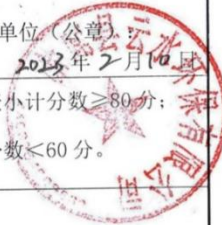 单位（公章）：
2023年2月10日
小计分数≥80分；
数＜60分。
县云水环保有限公司